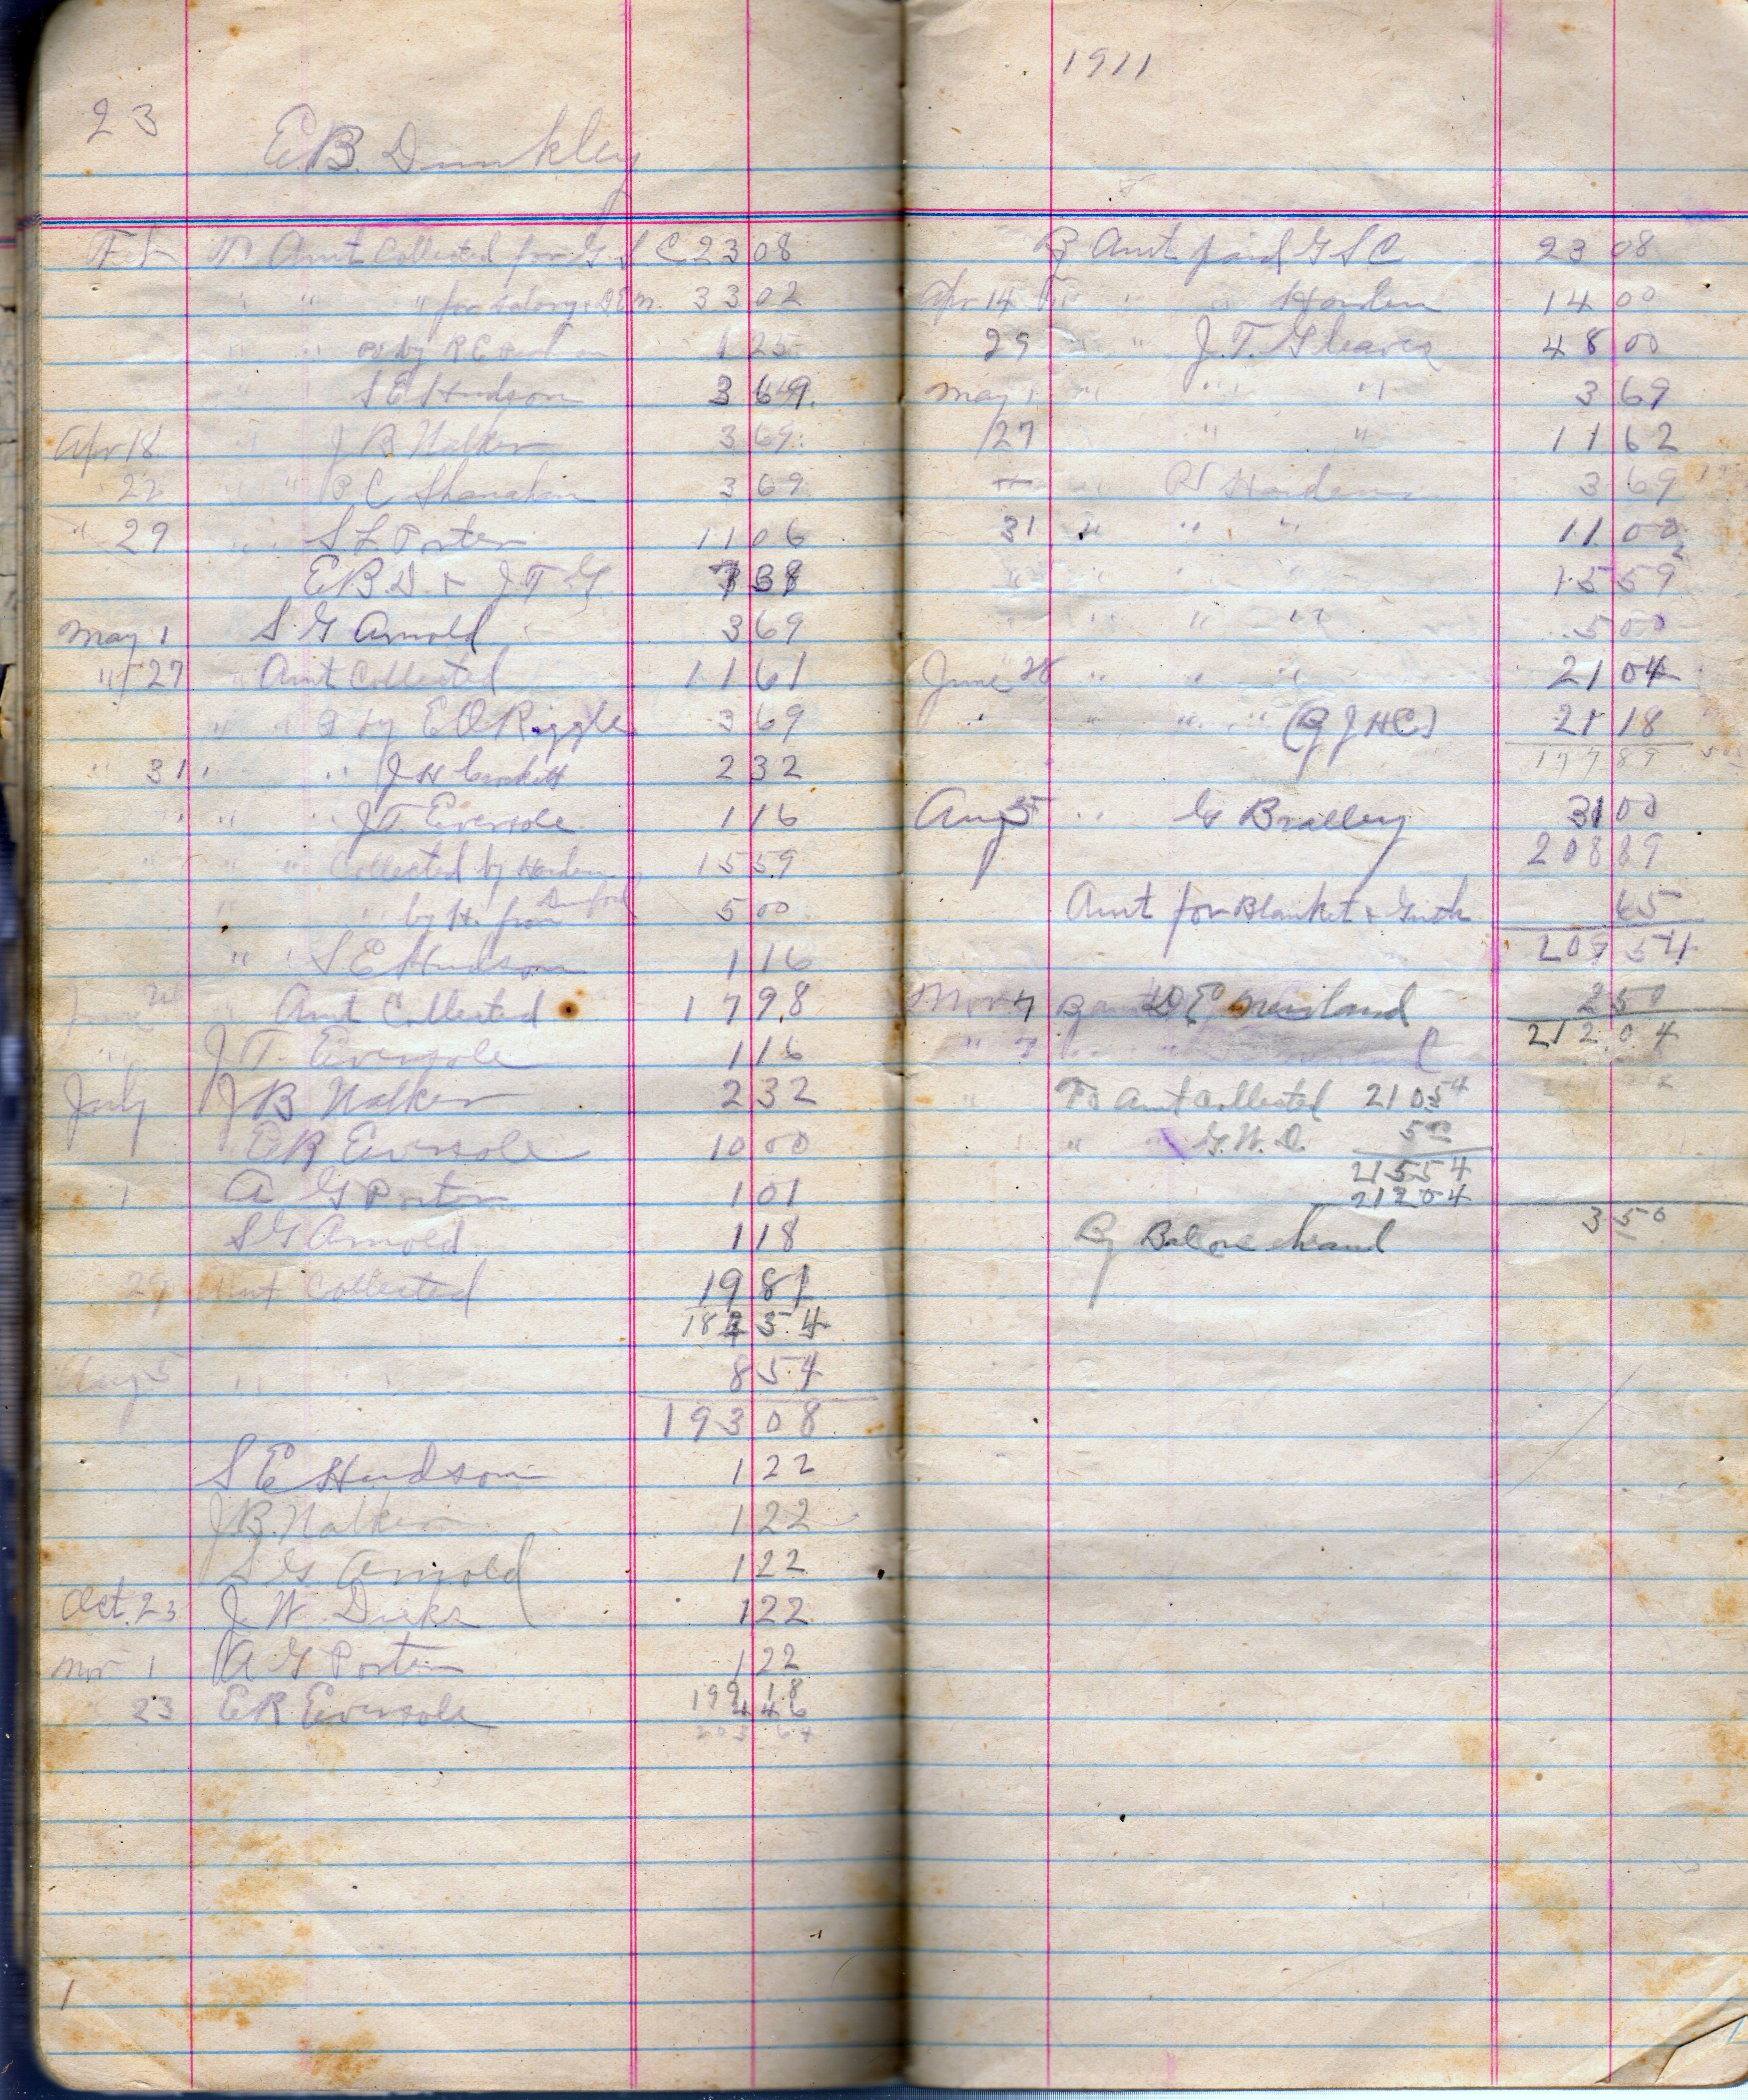 23
E.B. Dunkley
Feb To Amt Collected for G S C 23 08
" " " for salary 33 02
" " by R C 1 25
" S E Hudson 3 69
Apr 18 " J B Walker 3 69
22 " " P C Shanahan 3 69
" 29 " " S L Porter 11 06
E B. D. & J T G. 7 38
May 1 S G Arnold 3 69
" 27 " Amt Collected 11 61
" " by E O Riggle 3 69
" 31 " " J H Crockett 2 32
" " J.T. Eversole 1 16
" " " Collected by Harden 15 59
" " by H. from 5 00
" " S E Hudson 1 16
June " Amt Collected 17 98
" J T. Eversole 1 16
July J B Walker 2 32
E R Eversole 10 00
1 A G Porter 1 01
S G Arnold 1 18
29 Amt Collected 19 81
184 54
Aug 5 " " 8 54
193 08
S E Hudson 1 22
J B. Walker 1 22
S G Arnold 1 22
Oct. 23 J W 1 22
Nov 1 A G Porter 1 22
199 18
23 E R Eversole 4 46
203 64
1
1911
By Amt paid G S C 23 08
Apr 14 " " " Harden 14 00
29 " " J.T. Gleaves 48 00
May 1 " " " 3 69
/27 " " 11 62
" R Harden 3 69
31 " " " 11 00
" " " 15 59
" " " 5 00
June " " " 21 04
" " " " (By J H C) 21 18
177 89
Aug 5 " G Bralley 31 00
208 89
Amt for Blanket & 65
209 54
Nov 7 By amt W E 2 50
212 04
" 7
To Amt Collected 210 54
" " G. W. D. 5 00
215 54
212 04
3 50
By Bal on hand